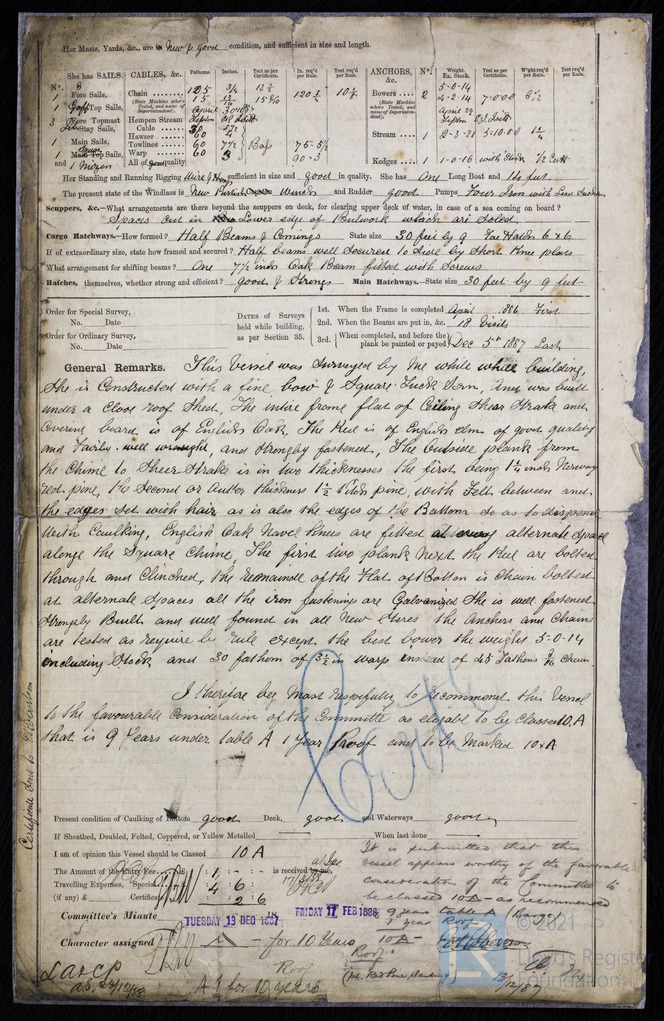 Her Masts, Yards, &c., are in New & good condition, and sufficient in size and length.
She has SAILS. CABLES, &c. Fathoms. Inches. Test as per Certificate. In. reqd per Rule. Test reqd per Rule. ANCHORS, &c. Nº. Weight. Ex. Stock. Test as per Certificate. W'ght req'd per Rule. Test req'd per Rule.
Nº.
Fore Sails, Chain 120 Bowers 2 5-0-14
Top Sails, (State Machine where Tested, and name of Superintendent). 15 4-2-14 7-0-0-0
Fore Topmast Stay Sails, Hempen Stream Cable April 27
Hawser 60 Stream 1 2-3-21 5-10-0-0 1¼
1 Main Sails, Towlines 60 7½ 75-5½
Main Top Sails, Warp 60 3 90-3 Kedges 1 1-0-16 with Stock ½ Cwt
and 1 Mizen All of good quality
Her Standing and Running Rigging Wire & Hemp sufficient in size and good in quality. She has One Long Boat and 14 feet
The present state of the Windlass is New Patent Capstan Winch and Rudder good Pumps Four Iron with Lead
Scuppers, &c.—What arrangements are there beyond the scuppers on deck, for clearing upper deck of water, in case of a sea coming on board?
Spaces cut in Lower edge of Bulwork which are Soled
Cargo Hatchways.—How formed? Half Beams & Comings State size 30 feet by 9 Fore Hatch 6 x 6
If of extraordinary size, state how framed and secured? Half beams well secured to side by Short Knee plates
What arrangement for shifting beams? One 7½ inch Oak Beam fitted with Screws
Hatches, themselves, whether strong and efficient? good & Strong Main Hatchways.—State size 30 feet by 9 feet
Order for Special Survey, No. Date
Order for Ordinary Survey, No. Date
DATES of Surveys held while building, as per Section 35.
1st. When the Frame is completed April 1886 First
2nd. When the Beams are put in, &c. 18 Visits
3rd. When completed, and before the plank be painted or payed Dec 5th 1887 Last
General Remarks. This Vessel was surveyed by me while building,
She is Constructed with a fine bow & Square Tuck Stern, And was built
under a Close roof Shed, The intire frame flat of Ceiling Shear Strake and
Covering board, is of English Oak, The Keel is of English elm of good quality
and fairly well wrought, and Strongly fastened, The Outside plank from
the Chime to Sheer Strake is in two thicknesses the first being 1½ inch Norway
red pine, the Second or Outer thickness 1½ Pitch pine, with Felt between and
the edges Set with hair as is also the edges of the Bottom so as to dispense
With Caulking, English Oak Navel Knees are fitted at every alternate Space
along the Square Chime, The first two planks next the Keel are bolted
through and Clinched, the remainder of the Flat of Bottom is Chain bolted
at alternate Spaces all the iron fastenings are Galvanized She is well fastened
Strongly Built and well found in all New Stores the Anchors and Chains
are tested as require by rule except the best bower the weight 5-0-14
including Stock and 30 fathom of 3½ in warp instead of 45 Fathoms Chain
I therefore beg Most respectfully to recommend this Vessel
to the favourable Consideration of the Committe as elegable to be Classed 10A
that is 9 Years under table A 1 Year Roof and to be Marked 10xA
Present condition of Caulking of Bottom good Deck, good and Waterways good
If Sheathed, Doubled, Felted, Coppered, or Yellow Metalled When last done
I am of opinion this Vessel should be Classed 10 A
The Amount of the Entry Fee £ 1 : : is received by me,
Travelling Expenses, Special £ 4 6
(if any) £ Certificate 2 6
It is submitted that this
vessel appears worthy of the favorable
consideration of the Committee to
be classed 10A- as recommended
9 years table A (Barge)
1 year Roof
10A-
Committee's Minute TUESDAY 13 DEC 1887 FRIDAY 17 FEB 1888
Character assigned A - for 10 Years
Roof
13/12/87
A 1 for 10 years
Certificate Sent to
© 2021
Lloyd's Register
Foundation